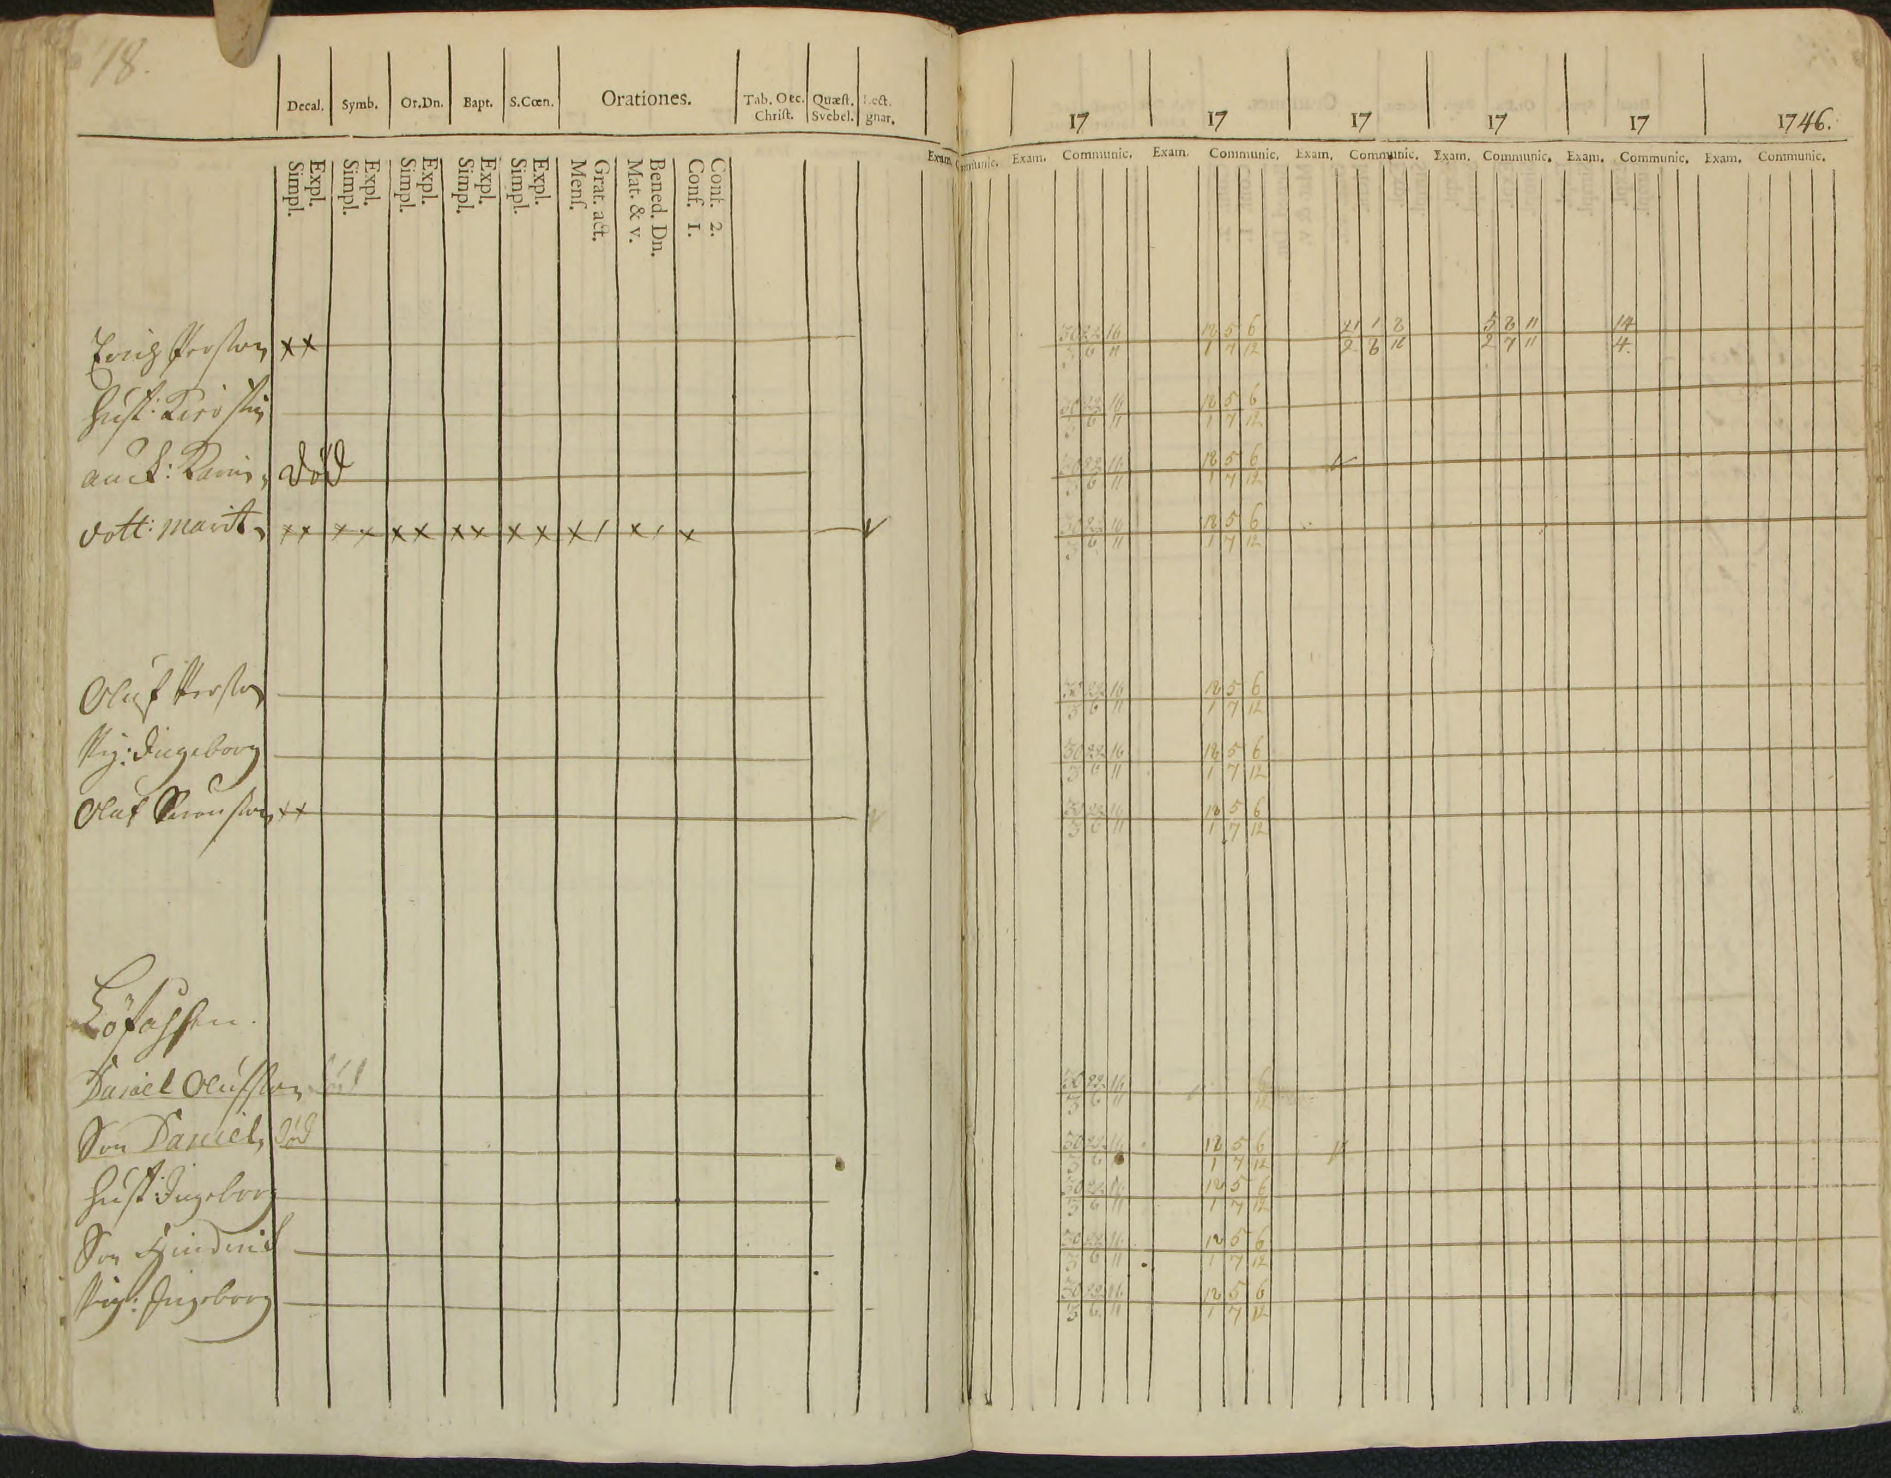 78.
Decal. Symb. Or.Dn. Bapt. S.Cœn. Orationes. Tab. Oec. Christ. Quæst. Svebel. Lect. gnar.
17 17 17 17 17 1746.
Expl. Simpl. Expl. Simpl. Expl. Simpl. Expl. Simpl. Expl. Simpl. Grat. act. Mens. Bened. Dn. Mat. & v. Conf. 2. Conf. 1.
Exam. Communic. Exam. Communic. Exam. Communic. Exam. Communic. Exam. Communic. Exam. Communic. Exam. Communic.
Persson xx 30 22 16 18 5 6 21 1 8 5 8 11 14
3 6 11 1 7 12 2 6 11 2 7 11 4.
Hust: Kirstin 30 22 16 18 5 6
3 6 11 1 7 12
Karin död 30 22 16 18 5 6
3 6 11 1 7 12
dott: Marit xx xx xx xx xx x/ x/ x 30 22 16 18 5 6
3 6 11 1 7 12
Oluf Persson 30 22 16 18 5 6
3 6 11 1 7 12
Pig: Ingeborg 30 22 16 18 5 6
3 6 11 1 7 12
Oluf xx 30 22 16 18 5 6
3 6 11 1 7 12
Löfåssen.
Daniel Olufsson död 30 22 16 6
3 6 11 12
Son Daniel död 30 22 16 18 5 6
3 6 1 7 12
Hust: Ingeborg 30 22 16 18 5 6
3 6 11 1 7 12
Son Hindrik 30 22 16 18 5 6
3 6 11 1 7 12
Pig: Ingeborg 30 22 16 18 5 6
3 6 11 1 7 12